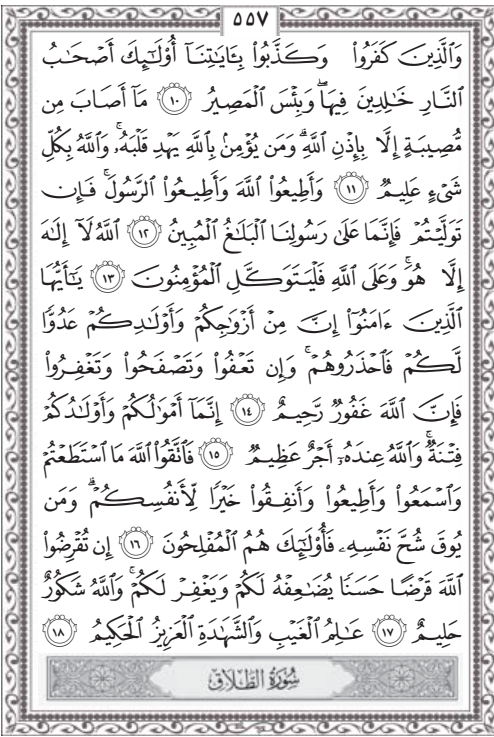 ٥٥٧
وَٱلَّذِينَ كَفَرُواْ وَكَذَّبُواْ بِـَٔايَٰتِنَآ أُوْلَٰٓئِكَ أَصۡحَٰبُ
ٱلنَّارِ خَٰلِدِينَ فِيهَاۖ وَبِئۡسَ ٱلۡمَصِيرُ ١٠ مَآ أَصَابَ مِن
مُّصِيبَةٍ إِلَّا بِإِذۡنِ ٱللَّهِۗ وَمَن يُؤۡمِنۢ بِٱللَّهِ يَهۡدِ قَلۡبَهُۥۚ وَٱللَّهُ بِكُلِّ
شَيۡءٍ عَلِيمٞ ١١ وَأَطِيعُواْ ٱللَّهَ وَأَطِيعُواْ ٱلرَّسُولَۚ فَإِن
تَوَلَّيۡتُمۡ فَإِنَّمَا عَلَىٰ رَسُولِنَا ٱلۡبَلَٰغُ ٱلۡمُبِينُ ١٢ ٱللَّهُ لَآ إِلَٰهَ
إِلَّا هُوَۚ وَعَلَى ٱللَّهِ فَلۡيَتَوَكَّلِ ٱلۡمُؤۡمِنُونَ ١٣ يَٰٓأَيُّهَا
ٱلَّذِينَ ءَامَنُوٓاْ إِنَّ مِنۡ أَزۡوَٰجِكُمۡ وَأَوۡلَٰدِكُمۡ عَدُوّٗا
لَّكُمۡ فَٱحۡذَرُوهُمۡۚ وَإِن تَعۡفُواْ وَتَصۡفَحُواْ وَتَغۡفِرُواْ
فَإِنَّ ٱللَّهَ غَفُورٞ رَّحِيمٌ ١٤ إِنَّمَآ أَمۡوَٰلُكُمۡ وَأَوۡلَٰدُكُمۡ
فِتۡنَةٞۚ وَٱللَّهُ عِندَهُۥٓ أَجۡرٌ عَظِيمٞ ١٥ فَٱتَّقُواْ ٱللَّهَ مَا ٱسۡتَطَعۡتُمۡ
وَٱسۡمَعُواْ وَأَطِيعُواْ وَأَنفِقُواْ خَيۡرٗا لِّأَنفُسِكُمۡۗ وَمَن
يُوقَ شُحَّ نَفۡسِهِۦ فَأُوْلَٰٓئِكَ هُمُ ٱلۡمُفۡلِحُونَ ١٦ إِن تُقۡرِضُواْ
ٱللَّهَ قَرۡضًا حَسَنٗا يُضَٰعِفۡهُ لَكُمۡ وَيَغۡفِرۡ لَكُمۡۚ وَٱللَّهُ شَكُورٌ
حَلِيمٌ ١٧ عَٰلِمُ ٱلۡغَيۡبِ وَٱلشَّهَٰدَةِ ٱلۡعَزِيزُ ٱلۡحَكِيمُ ١٨
سُورَةُ الطَّلَاقِ